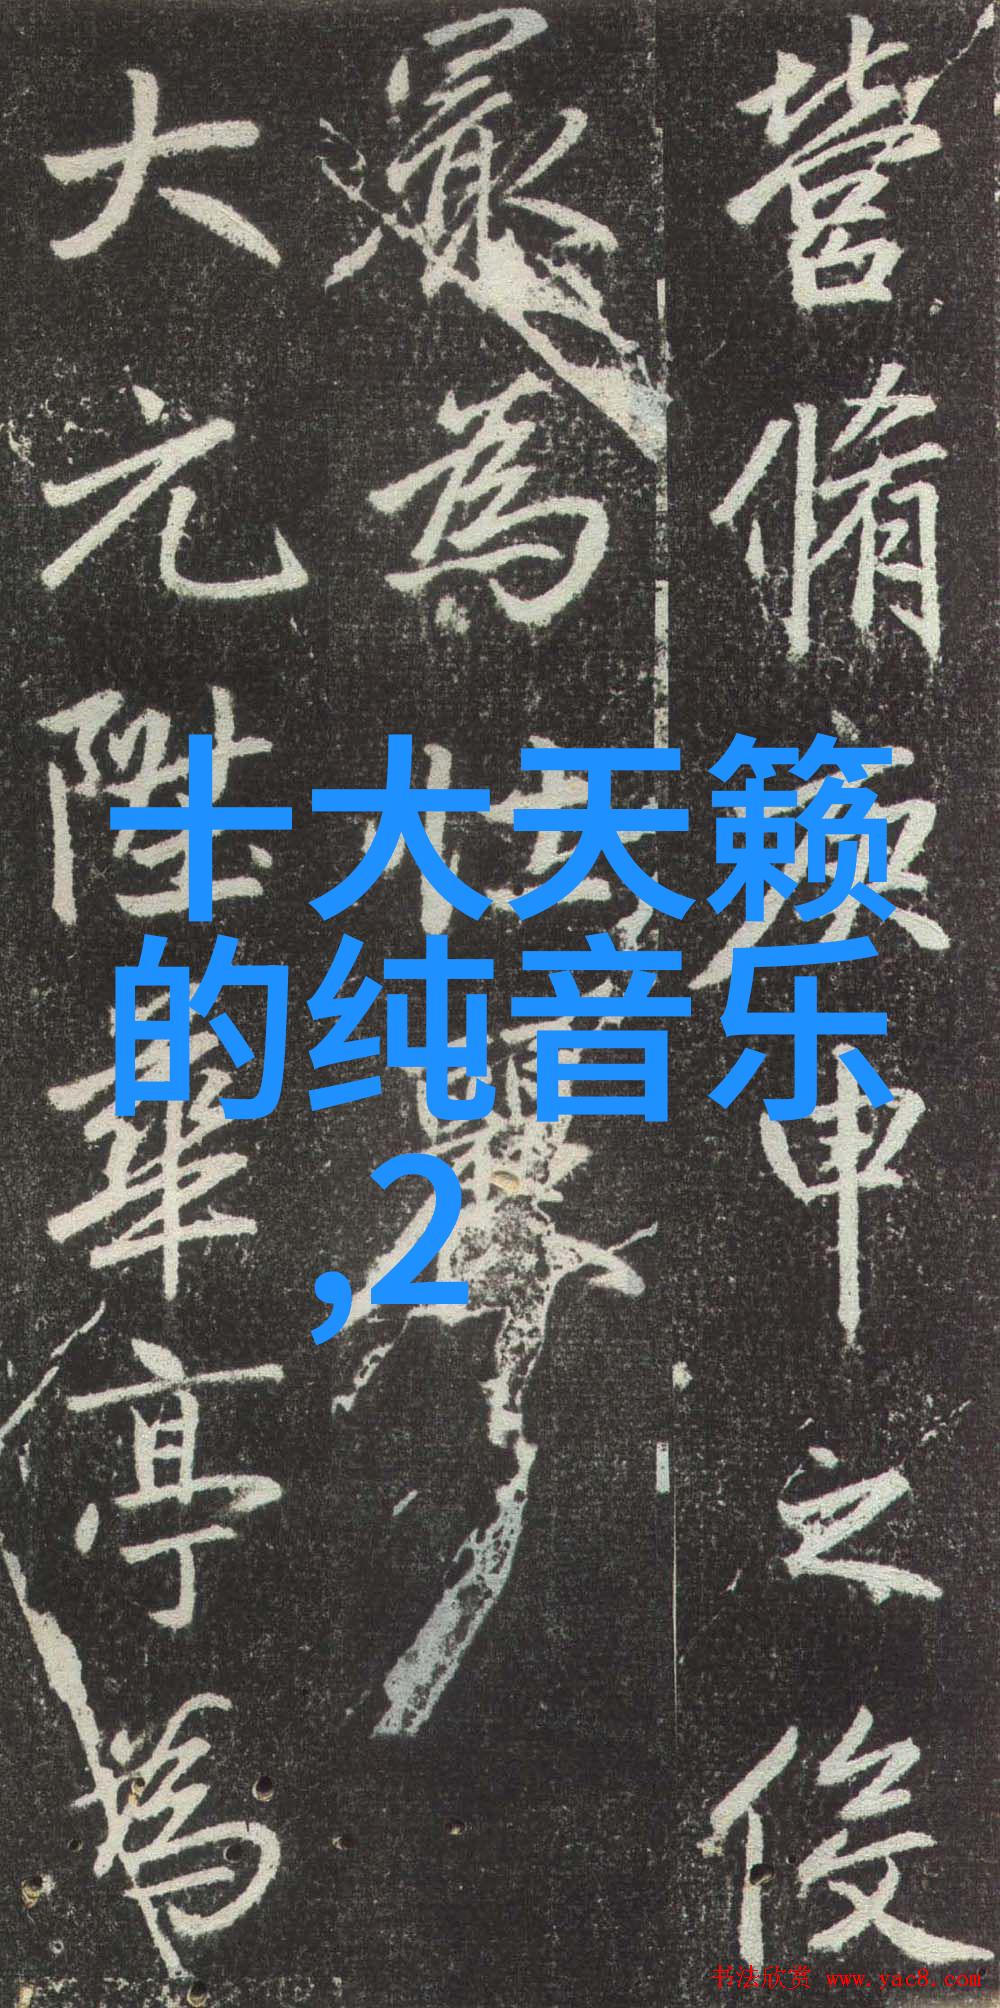 營脩申之俊
為
大元陞華亭為
十大天籁
的纯音乐
,2
书法欣赏 www.yac8.com